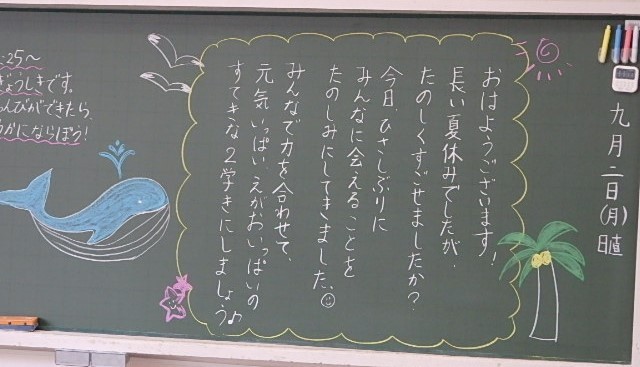 九月二日(月)
日直
おはようございます!
長い夏休みでしたが、
たのしくすごせましたか?
今日、ひさしぶりに
みんなに会えることを
たのしみにしてきました。
みんなで力を合わせて、
元気いっぱい、えがおいっぱいの
すてきな2学きにしましょう♪
:25〜
ぎょうしきです。
んびができたら、
うかにならぼう!